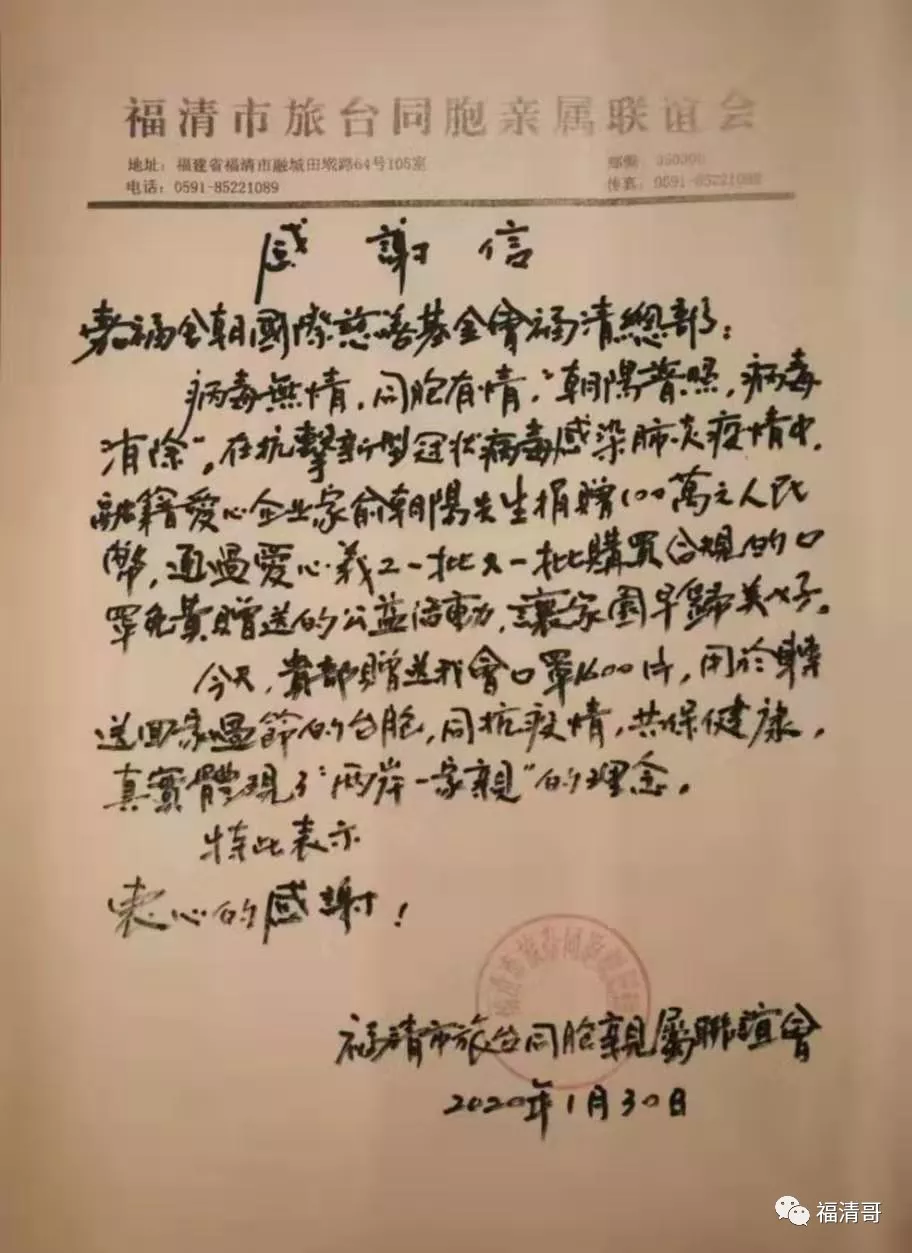 福清市旅台同胞亲属联谊会
地址：福建省福清市融城田墘路64号105室
邮编：350300
电话：0591-85221089
传真：0591-85221089
感謝信
福金朝國際慈善基金會福清總部：
病毒無情，同胞有情，“朝陽普照，病毒
消除”。在抗擊新型冠状病毒感染肺炎疫情中，
融籍愛心企业家俞朝陽先生捐贈100萬元人民
幣，通過愛心義工一批又一批購買合規的口
罩免費贈送的公益活動，讓家園早歸美好。
今天，貴部贈送我會口罩1600片，用於轉
送回家過節的台胞，同抗疫情，共保健康，
真實體現了“两岸一家親”的理念。
特此表示
衷心的感謝！
福清市旅台同胞親屬聯誼會
2020年1月30日
福清哥